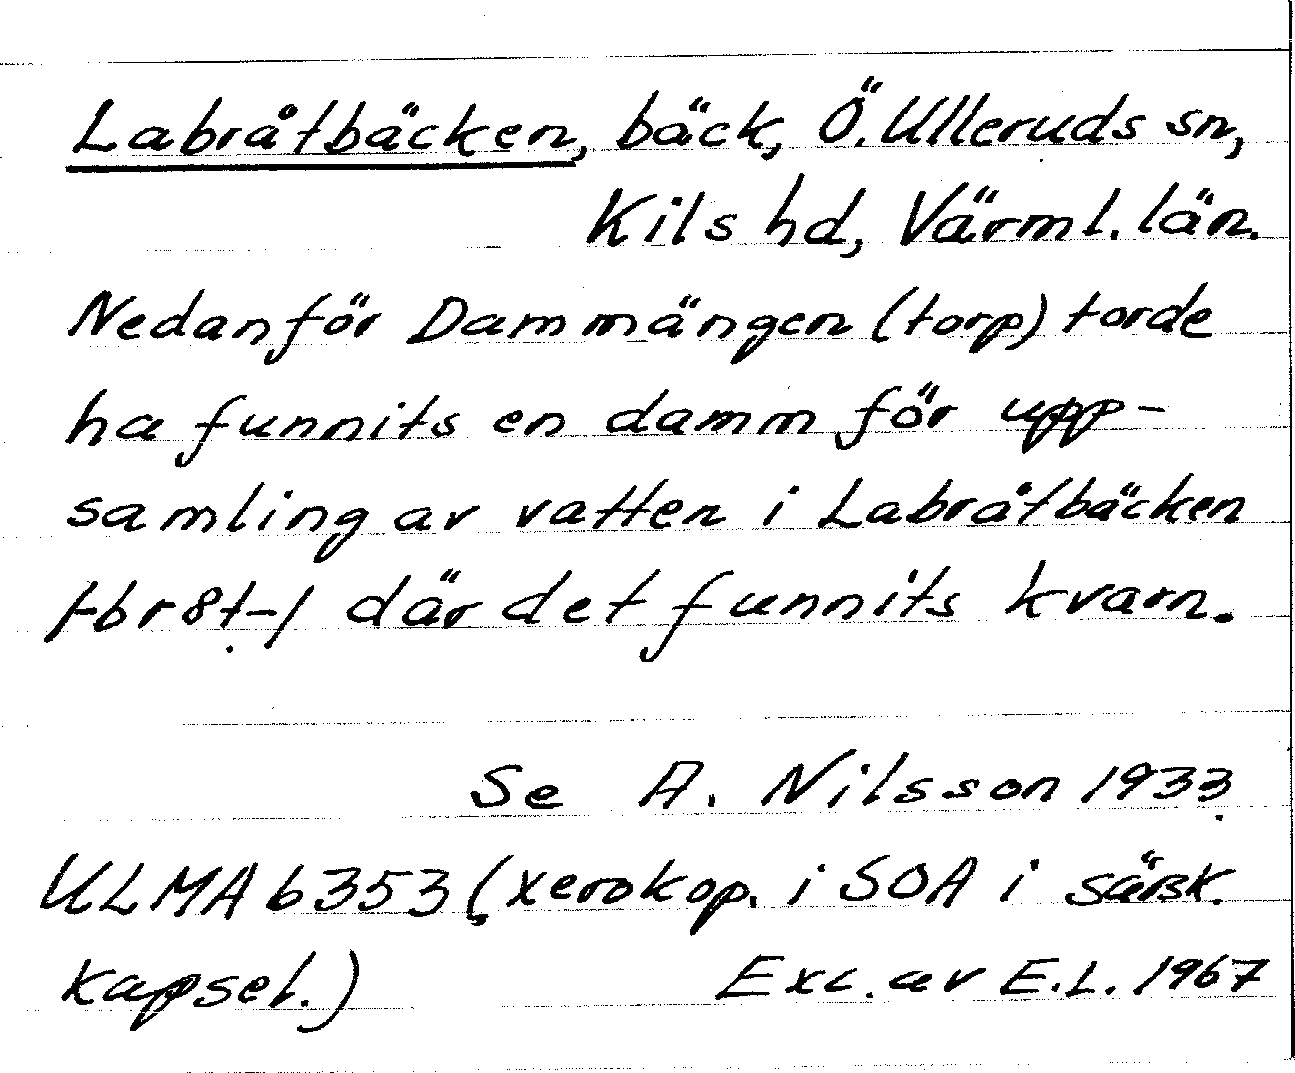 Labråtbäcken, bäck, Ö. Ulleruds sn,
Kils hd, Värml. län.
Nedanför Dammängen (torp) torde
ha funnits en damm för upp-
samling av vatten i Labråtbäcken
/-br8ṭ-/ där det funnits kvarn.
Se A. Nilsson 1933
ULMA 6353 (xerokop. i SOA i särsk.
kapsel.) Exc. av E.L. 1967